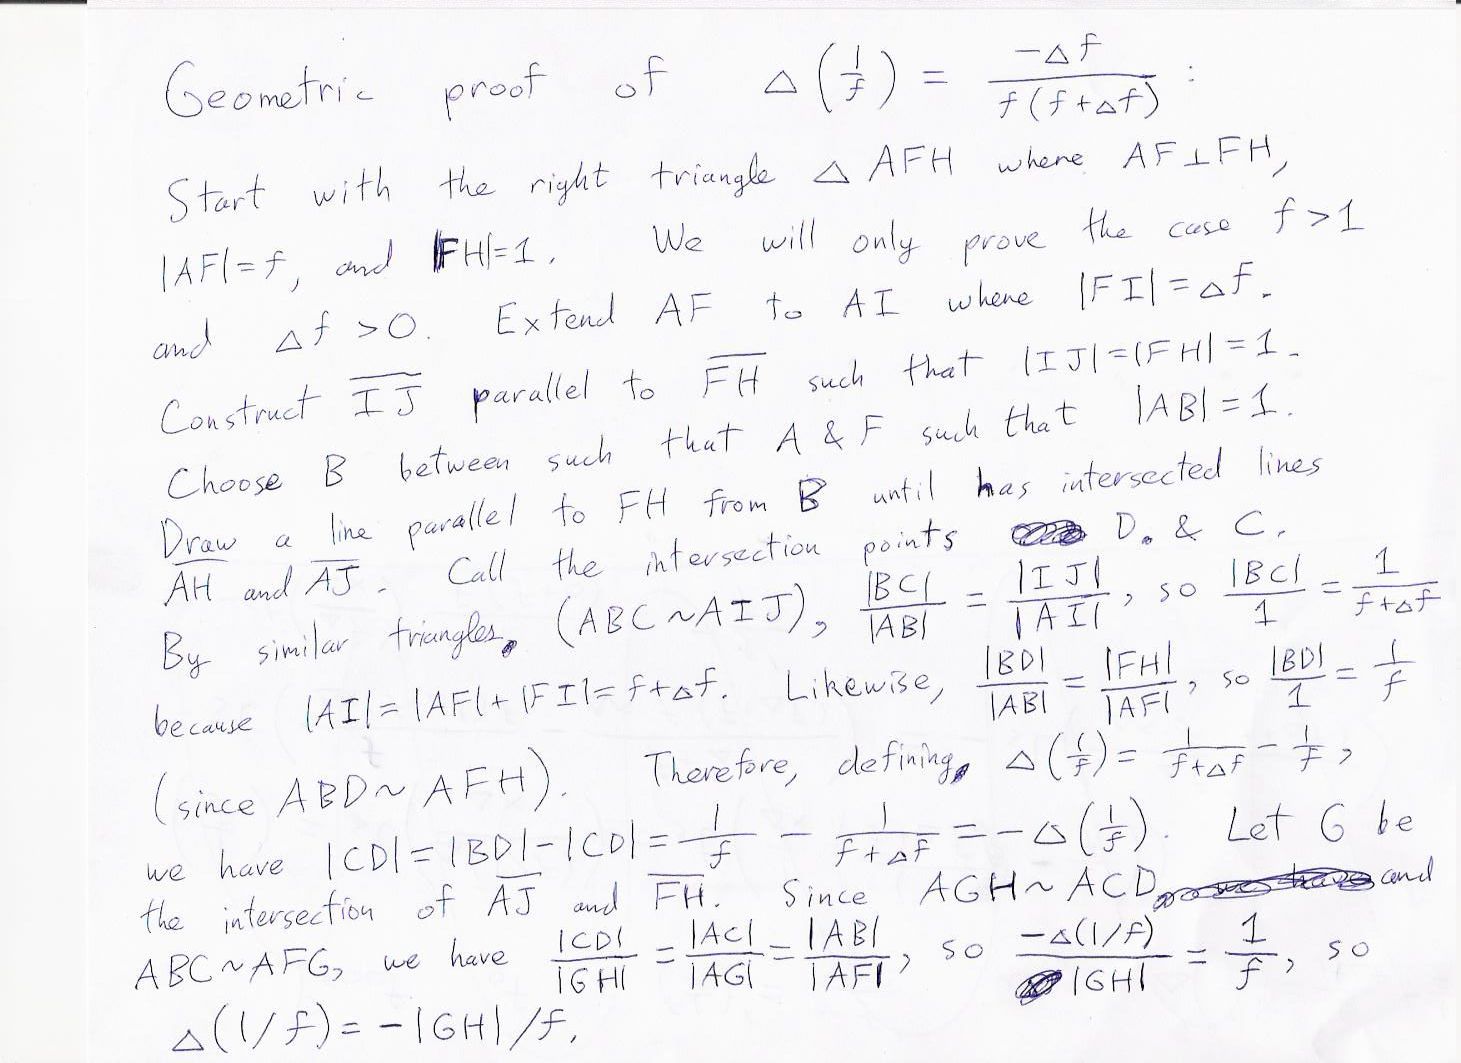 Geometric proof of △(1/f) = -△f / f(f+△f) :
Start with the right triangle △AFH where AF⊥FH,
|AF|=f, and |FH|=1. We will only prove the case f>1
and △f>0. Extend AF to AI where |FI|=△f.
Construct \overline{IJ} parallel to \overline{FH} such that |IJ|=|FH|=1.
Choose B between such that A & F such that |AB|=1.
Draw a line parallel to FH from B until has intersected lines
\overline{AH} and \overline{AJ}. Call the intersection points D. & C.
By similar triangles, (ABC~AIJ), |BC|/|AB| = |IJ|/|AI|, so |BC|/1 = 1/(f+△f)
because |AI|=|AF|+|FI|=f+△f. Likewise, |BD|/|AB| = |FH|/|AF|, so |BD|/1 = 1/f
(since ABD~AFH). Therefore, defining, △(1/f) = 1/(f+△f) - 1/f,
we have |CD|=|BD|-|CD|= 1/f - 1/(f+△f) = -△(1/f). Let G be
the intersection of \overline{AJ} and \overline{FH}. Since AGH~ACD, and
ABC~AFG, we have |CD|/|GH| = |AC|/|AG| = |AB|/|AF|, so -△(1/f)/|GH| = 1/f, so
△(1/f)=-|GH|/f.